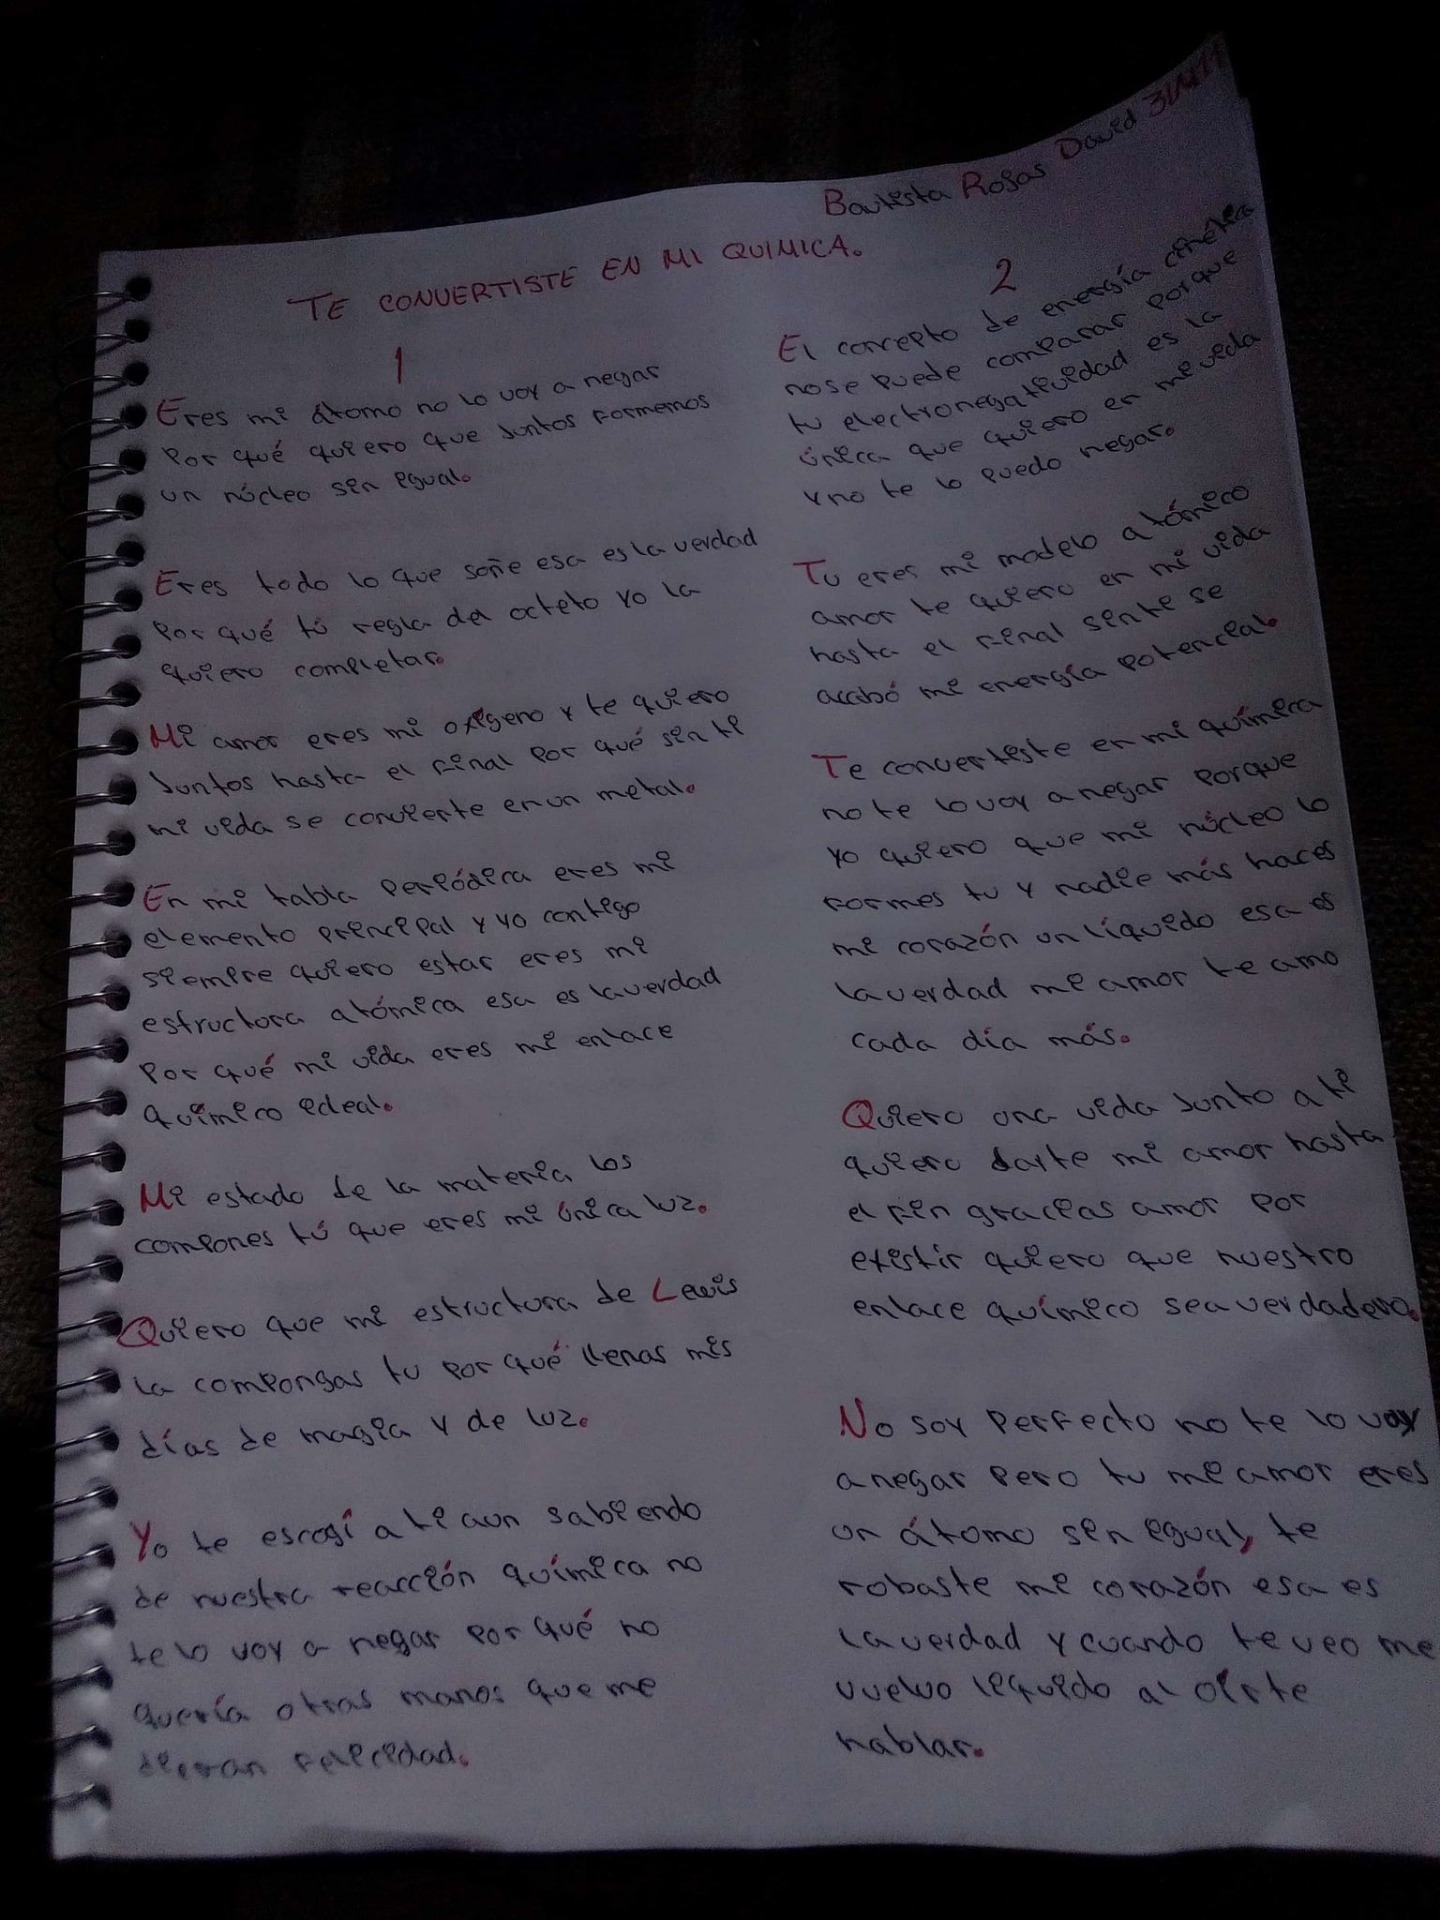 Bautista Rosas David
TE CONVERTISTE EN MI QUIMICA.
1
Eres mi átomo no lo voy a negar
Por qué quiero que juntos formemos
un núcleo sin igual.
Eres todo lo que soñe esa es la verdad
Por qué tú regla del octeto yo la
quiero completar.
Mi amor eres mi oxígeno y te quiero
juntos hasta el final Por qué sin ti
mi vida se convierte en un metal.
En mi tabla Periódica eres mi
elemento principal y yo contigo
siempre quiero estar eres mi
estructura atómica esa es la verdad
Por qué mi vida eres mi enlace
químico ideal.
Mi estado de la materia los
compones tú que eres mi única luz.
Quiero que mi estructura de Lewis
la compongas tu por qué llenas mis
días de magia y de luz.
Yo te escogí a ti aun sabiendo
de nuestra reacción química no
te lo voy a negar por qué no
quería otras manos que me
dieran felicidad.
2
El concepto de energía cinética
no se puede comparar porque
tu electronegatividad es la
única que quiero en mi vida
y no te lo puedo negar.
Tu eres mi modelo atómico
amor te quiero en mi vida
hasta el final sin te se
acabó mi energía potencial.
Te convertiste en mi química
no te lo voy a negar porque
yo quiero que mi núcleo lo
formes tu y nadie más haces
mi corazón un líquido esa es
la verdad mi amor te amo
cada día más.
Quiero una vida junto a ti
quiero darte mi amor hasta
el fin gracias amor por
existir quiero que nuestro
enlace químico sea verdadero.
No soy Perfecto no te lo voy
a negar pero tu mi amor eres
un átomo sin igual, te
robaste mi corazón esa es
la verdad y cuando te veo me
vuelvo líquido al oirte
hablar.